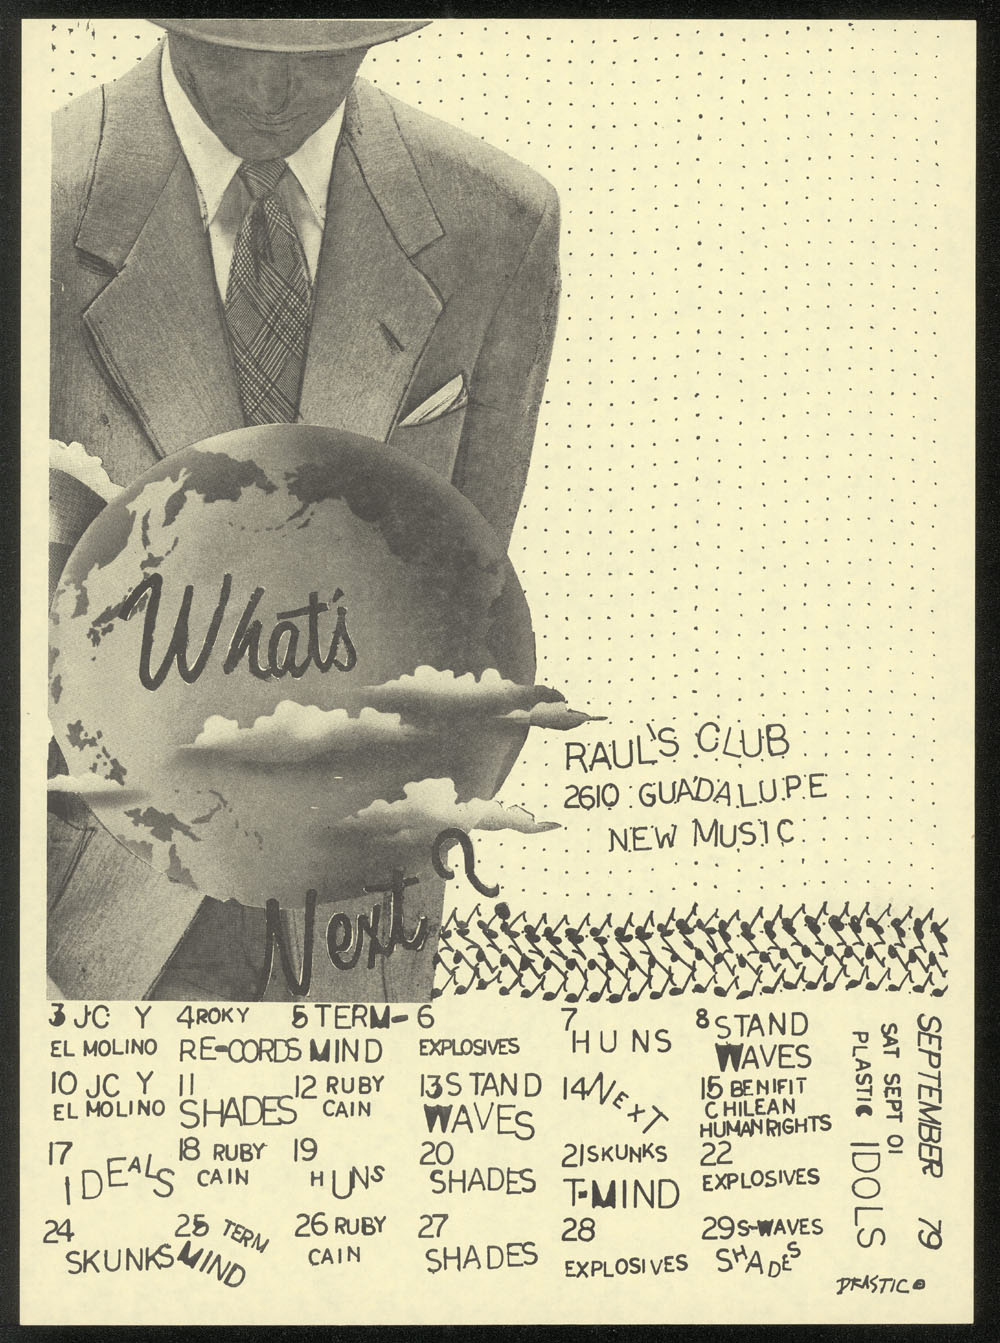 What's
Next?
RAUL'S CLUB
2610 GUADALUPE
NEW MUSIC
3 JC Y
EL MOLINO
4 ROKY
RE-CORDS
5 TERM-
MIND
6
EXPLOSIVES
7
HUNS
8 STAND
WAVES
10 JC Y
EL MOLINO
11
SHADES
12 RUBY
CAIN
13 STAND
WAVES
14 NEXT
15 BENIFIT
CHILEAN
HUMAN RIGHTS
17
IDEALS
18 RUBY
CAIN
19
HUNS
20
SHADES
21 SKUNKS
T-MIND
22
EXPLOSIVES
24
SKUNKS
25 TERM
MIND
26 RUBY
CAIN
27
SHADES
28
EXPLOSIVES
29 S-WAVES
SHADES
SEPTEMBER 79
SAT SEPT 01
PLASTIC IDOLS
DRASTIC